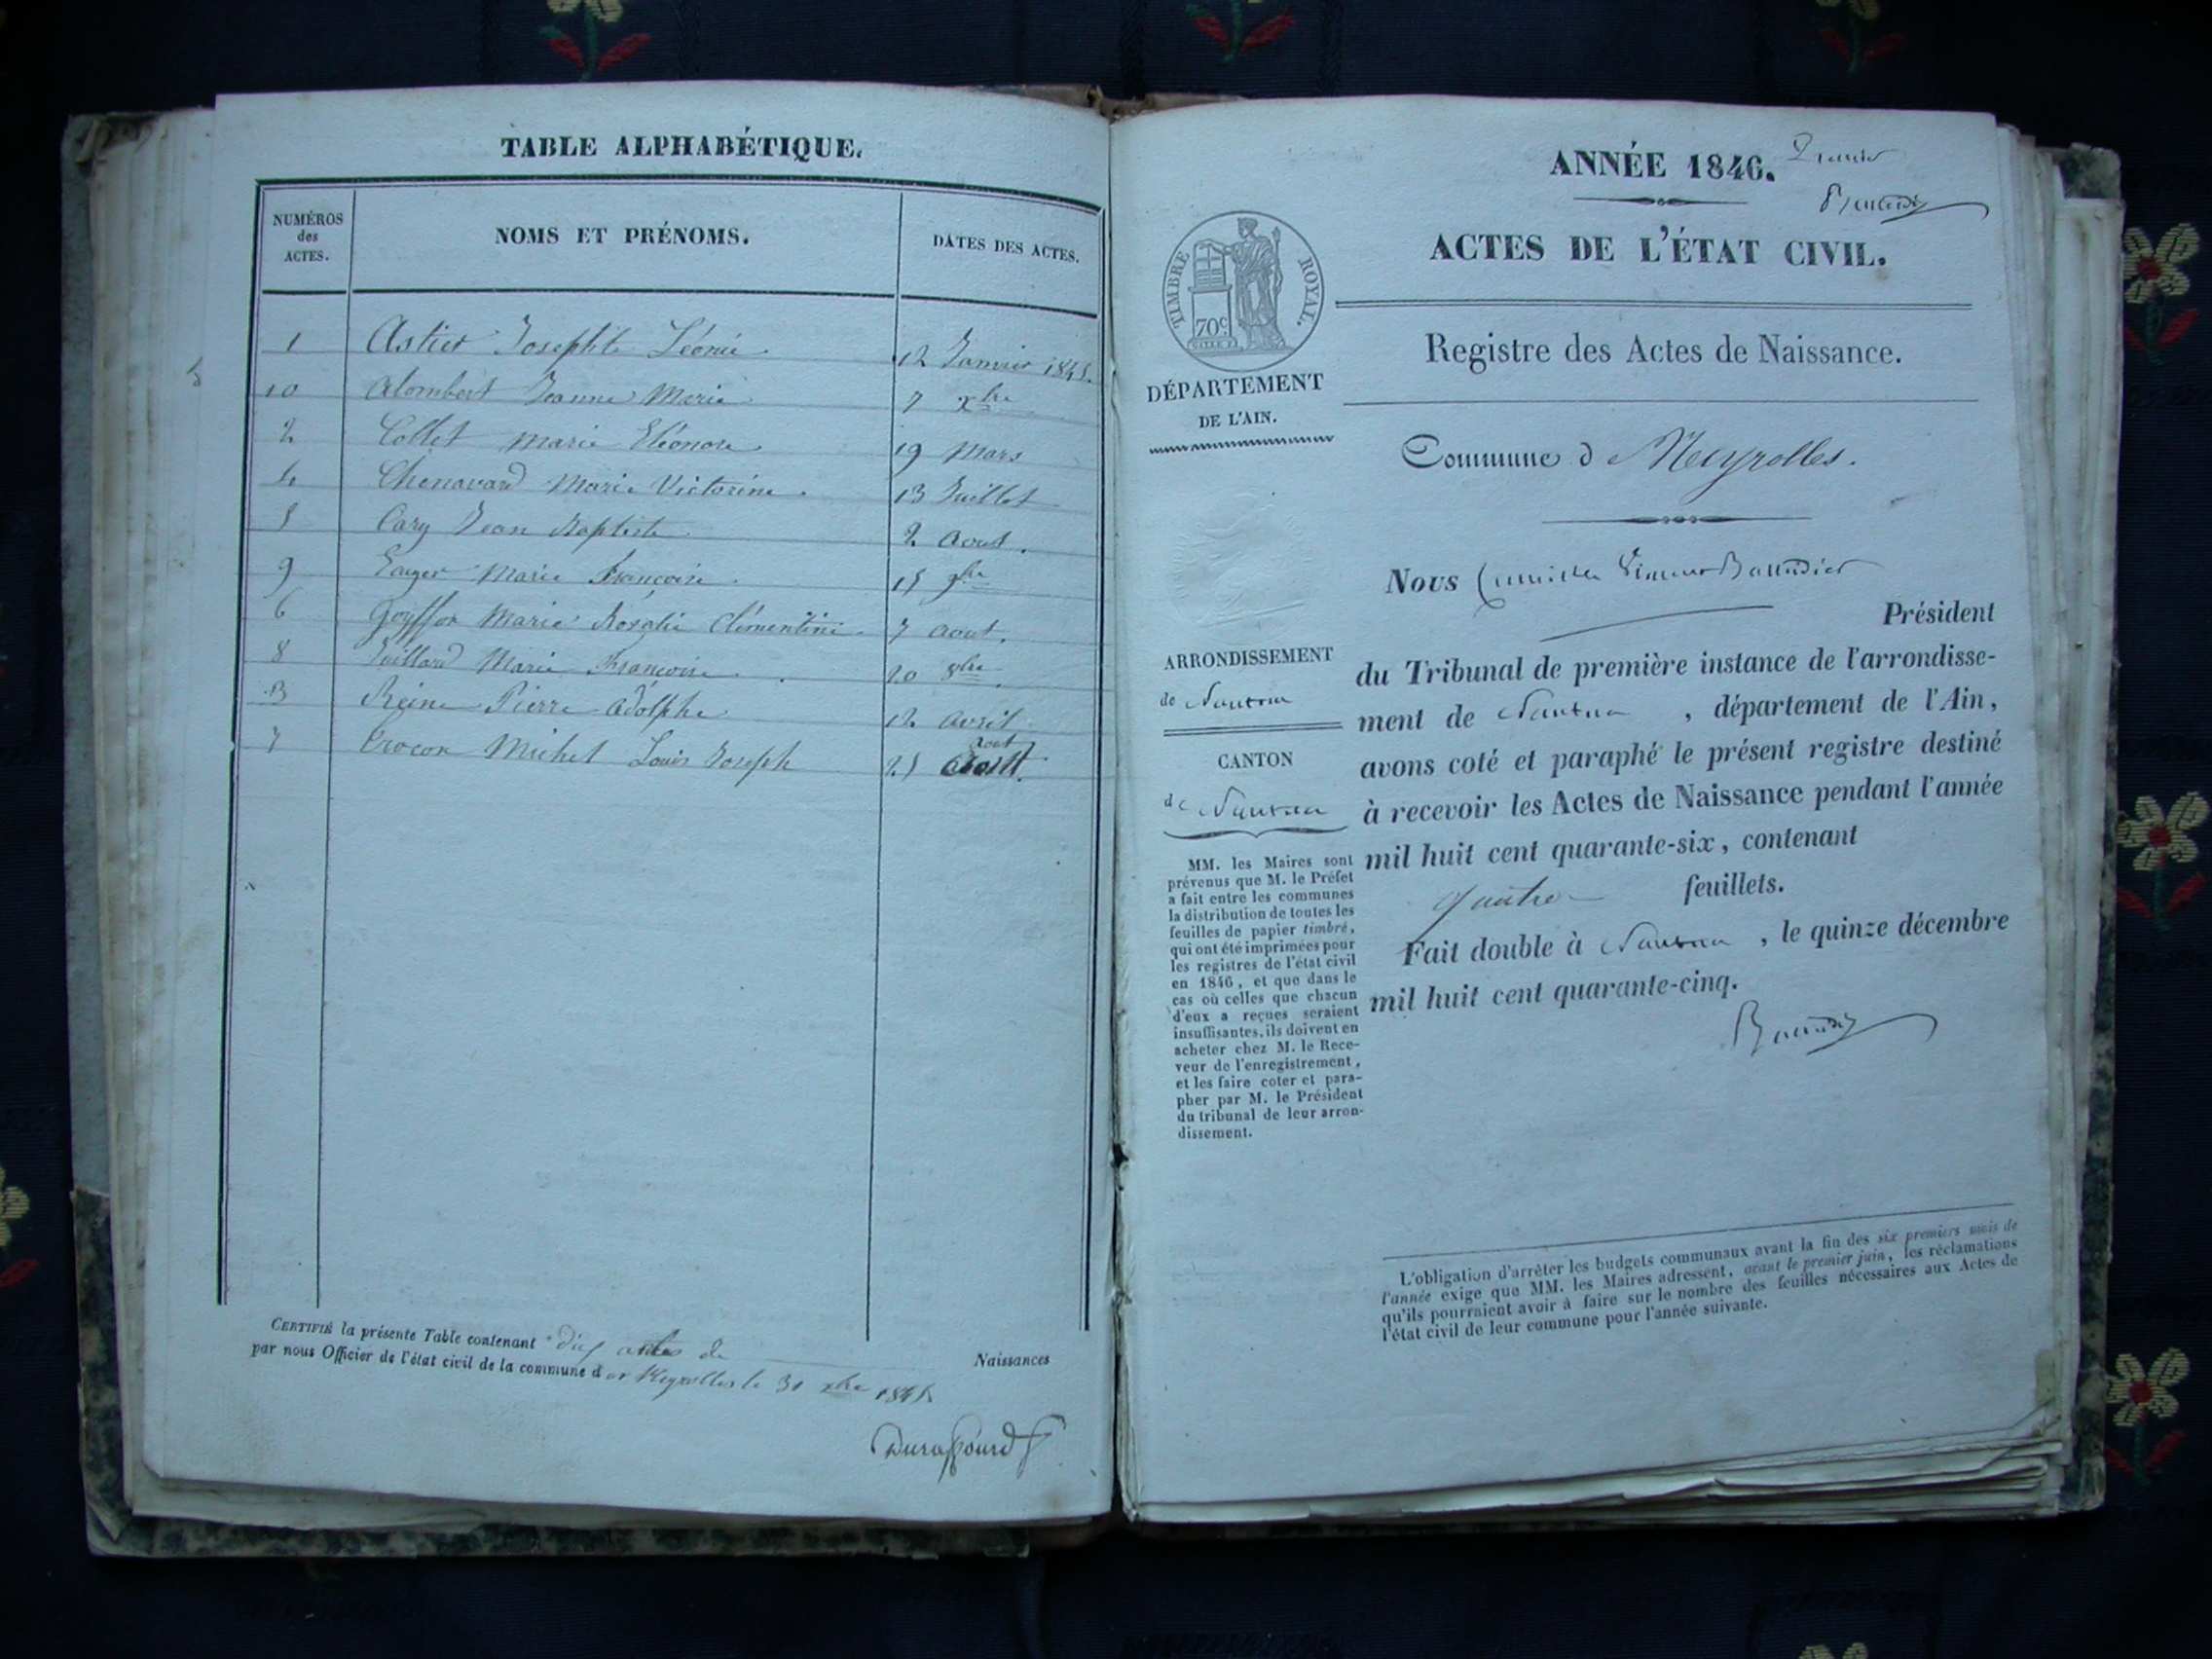 TABLE ALPHABÉTIQUE.
NUMÉROS des ACTES.
NOMS ET PRÉNOMS.
DATES DES ACTES.
1 Astier Josephte Léonie 12 Janvier 1845.
10 Alombert Jeanne Marie 7 xbre
2 Collet Marie Eléonore 19 Mars
4 Chenavard Marie Victorine. 13 Juillet
5 Cary Jean Baptiste 2 Aout.
9 Marie Françoise. 15 9bre
6 Goyffon Marie Rosalie Clémentine. 7 Aout.
8 Juillard Marie Françoise. 20 8bre.
3 Reine Pierre Adolphe 12 Avril
7 Crocon Michel Louis Joseph 25 Aout
CERTIFIÉ la présente Table contenant dix actes de Naissances
par nous Officier de l'état civil de la commune de Meyrolles le 31 xbre 1845
Duraffourd
ANNÉE 1846. Premier
ACTES DE L'ÉTAT CIVIL.
TIMBRE ROYAL.
70c
Registre des Actes de Naissance.
DÉPARTEMENT
DE L'AIN.
Commune d Meyrolles.
Nous Camille
Président
ARRONDISSEMENT
de Nantua
CANTON
de Nantua
du Tribunal de première instance de l'arrondisse-
ment de Nantua, département de l'Ain,
avons coté et paraphé le présent registre destiné
à recevoir les Actes de Naissance pendant l'année
mil huit cent quarante-six, contenant
quatre feuillets.
Fait double à Nantua, le quinze décembre
mil huit cent quarante-cinq.
MM. les Maires sont
prévenus que M. le Préfet
a fait entre les communes
la distribution de toutes les
feuilles de papier timbré,
qui ont été imprimées pour
les registres de l'état civil
en 1846, et que dans le
cas où celles que chacun
d'eux a reçues seraient
insuffisantes, ils doivent en
acheter chez M. le Rece-
veur de l'enregistrement,
et les faire coter et para-
pher par M. le Président
du tribunal de leur arron-
dissement.
L'obligation d'arrêter les budgets communaux avant la fin des six premiers mois de
l'année exige que MM. les Maires adressent, avant le premier juin, les réclamations
qu'ils pourraient avoir à faire sur le nombre des feuilles nécessaires aux Actes de
l'état civil de leur commune pour l'année suivante.